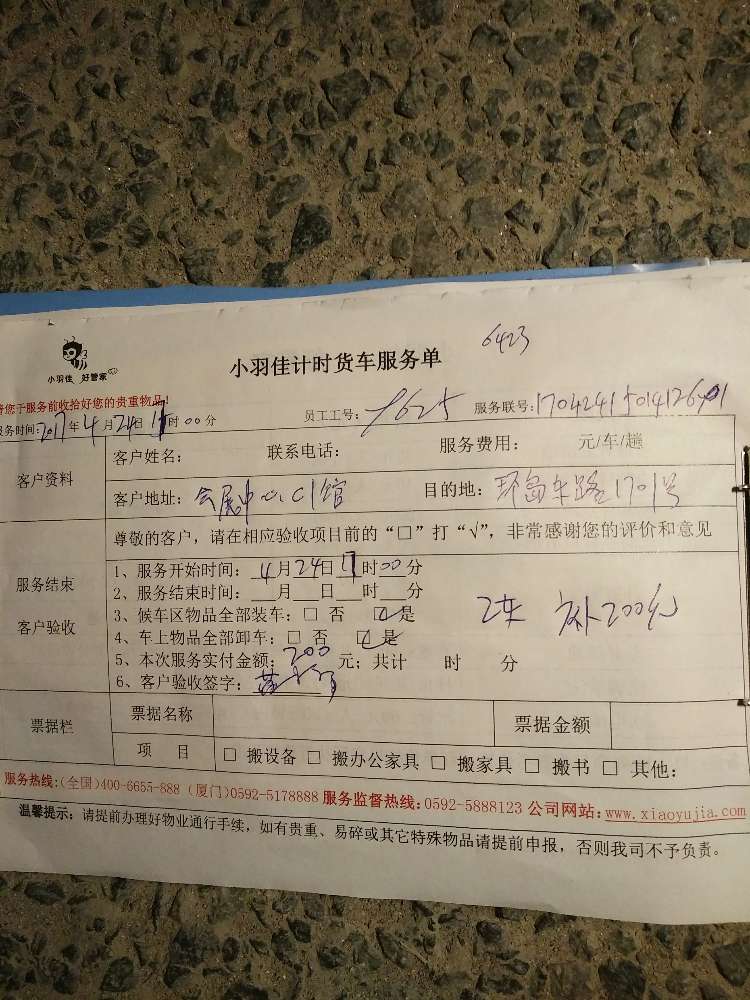 6423
小羽佳 好管家
小羽佳计时货车服务单
请您于服务前收拾好您的贵重物品！
服务时间:2017年4月24日17时00分 员工工号: 服务联号:
客户资料
客户姓名: 联系电话: 服务费用: 元/车/趟
客户地址: 会展中心C1馆 目的地: 环岛东路1701号
服务结束
客户验收
尊敬的客户，请在相应验收项目前的“□”打“√”，非常感谢您的评价和意见
1、服务开始时间: 4月24日17时00分
2、服务结束时间: 月 日 时 分
3、候车区物品全部装车: □ 否 □ 是
4、车上物品全部卸车: □ 否 □ 是
2车 补200元
5、本次服务实付金额: 200 元; 共计 时 分
6、客户验收签字:
票据栏
票据名称 票据金额
项 目 □ 搬设备 □ 搬办公家具 □ 搬家具 □ 搬书 □ 其他:
服务热线:(全国)400-6655-888 (厦门)0592-5178888 服务监督热线:0592-5888123 公司网站:www.xiaoyujia.com
温馨提示: 请提前办理好物业通行手续，如有贵重、易碎或其它特殊物品请提前申报，否则我司不予负责。